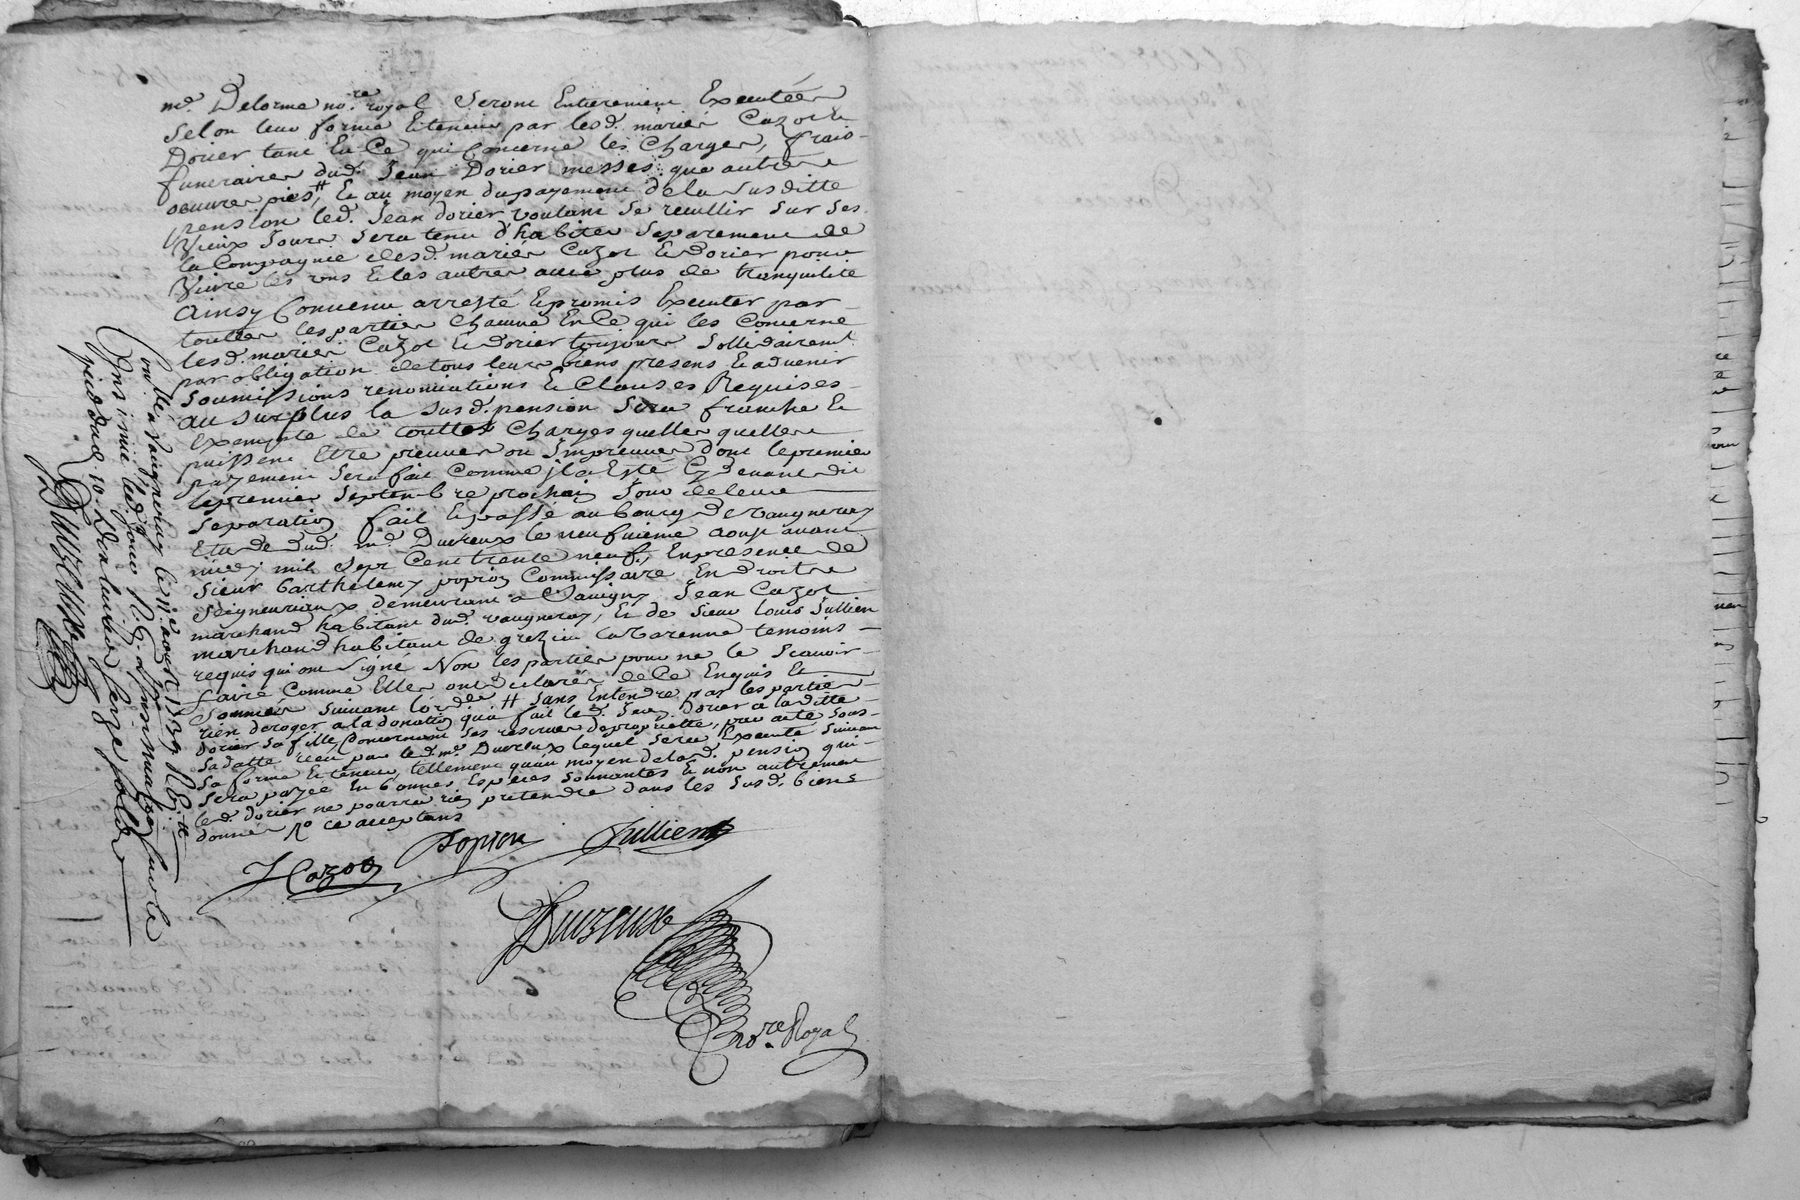 me. Delorme no.re royal Seront Entierement Executées
Selon leur forme Et teneur par lesd. mariés Cazot &
Dorier tant En Ce qui Concerne les Charges, frais
funeraires dud. Jean Dorier messes que autres
oeuvres pies, # Et au moyen du payement de la susditte
pension led. Jean dorier voulant se recullir sur ses
Vieux Jours sera tenu d'habiter separement de
la Compagnie desd. mariés Cazot Et Dorier pour
Vivre les uns Et les autres avec plus de tranquilité
Ainsy Convenu arresté Et promis Executer par
touttes les parties Chacune En Ce qui les Concerne
lesd. mariés Cazot Et Dorier toujours Sollidairemt.
par obligation de tous leurs biens presens Et advenir
Soumissions renonciations Et Clauses Requises
au surplus la susd. pension sera franche Et
Exempte de touttes Charges quelles quelles
puissent Etre preuues ou Impreuues dont le premier
payement sera fait Comme il a Esté Cy devant dit
le premier septembre prochain Jour de leur
separation fait Et passé au bourg de vaugneray
Etude dud. me. Duvreux le neufvieme aoust avant
midy mil sept Cent trente neuf, En presence de
Sieur barthelemy popion Commissaire En droits
Seigneuriaux demeurant a Savigny Jean Cazot
marchand habitant dud. vaugneray, Et de Sieur louis Jullien
marchand habitant de grezieu la varenne temoins
requis qui ont signé Non les parties pour ne le scavoir
faire Comme Elles ont declarés de Ce Enquis Et
sommés suivant l'ord.ce # sans Entendre par les parties
rien deroger a la donation qu'a fait led. Jean Dorier a laditte
dorier sa fille, Concernant ses reserves de proprietté, par acte sous
sa datte recu par led. me. Duvreux lequel sera Executé suivant
sa forme Et teneur, tellement qu'au moyen de lad. pension qui
sera payée En bonnes Especes sonnantes Et non autrement
led. dorier ne pourra rien pretendre dans les susd. biens
donnés, ce acceptans
J Cazot popion Jullien
Duvreux
no.re Royal
Con.llé a vaugneray le 11e. aoust 1739
Insinué led. jour sur le
pied dud.
Duvreux